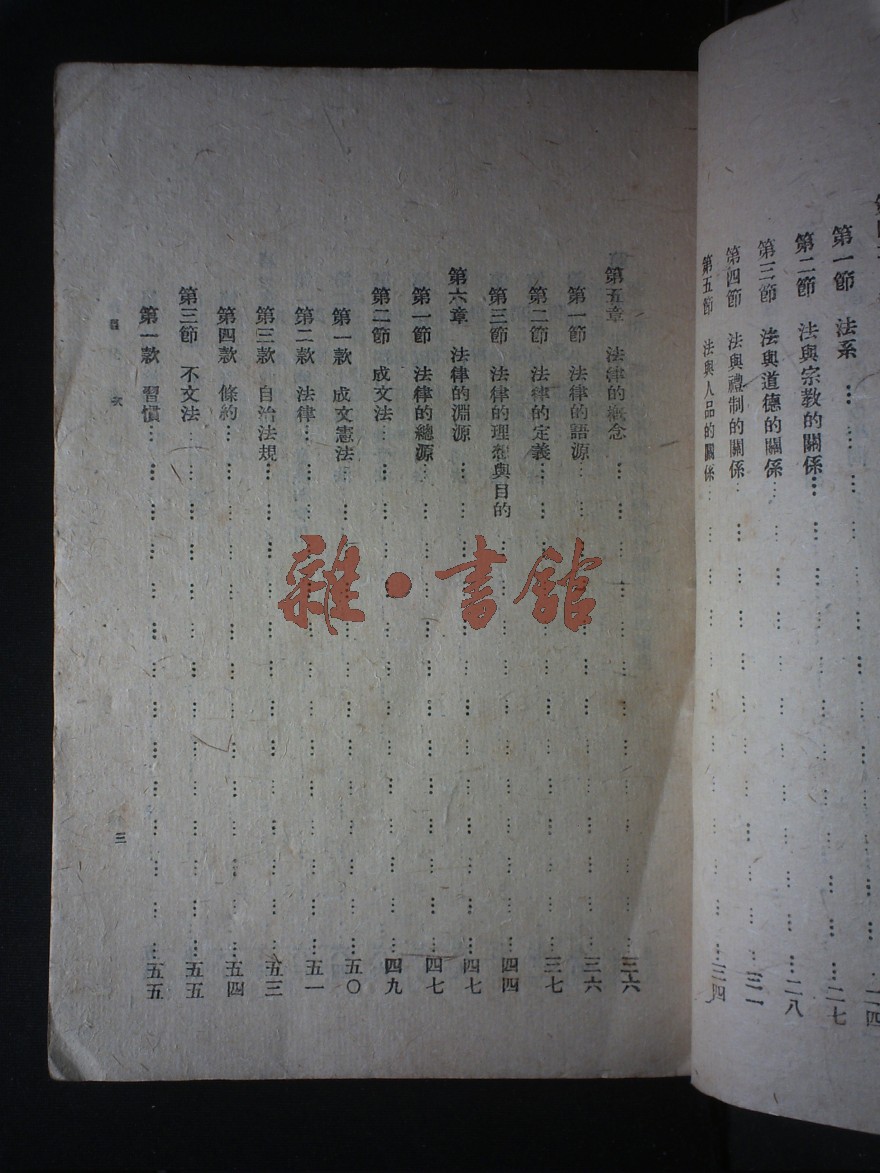 第一節　法系……二七
第二節　法與宗教的關係……二八
第三節　法與道德的關係……三一
第四節　法與禮制的關係……
第五節　法與人品的關係……三四
第五章　法律的概念……三六
第一節　法律的語源……三六
第二節　法律的定義……三七
第三節　法律的理想與目的……四四
第六章　法律的淵源……四七
第一節　法律的總源……四七
第二節　成文法……四九
第一款　成文憲法……五〇
第二款　法律……五一
第三款　自治法規……五三
第四款　條約……五四
第三節　不文法……五五
第一款　習慣……五五
目　次　三
雜·書館